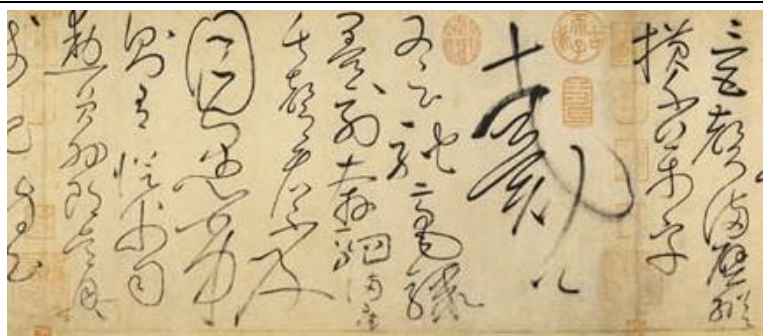 三五聲滿壁縱
橫千萬字
戴公
又云馳毫驟
墨列奔駟滿座
失聲看不及
目愚劣
則有從父司
勳員外郎吳興
錢起詩云